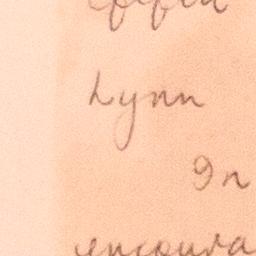 Lynn
In
encoura